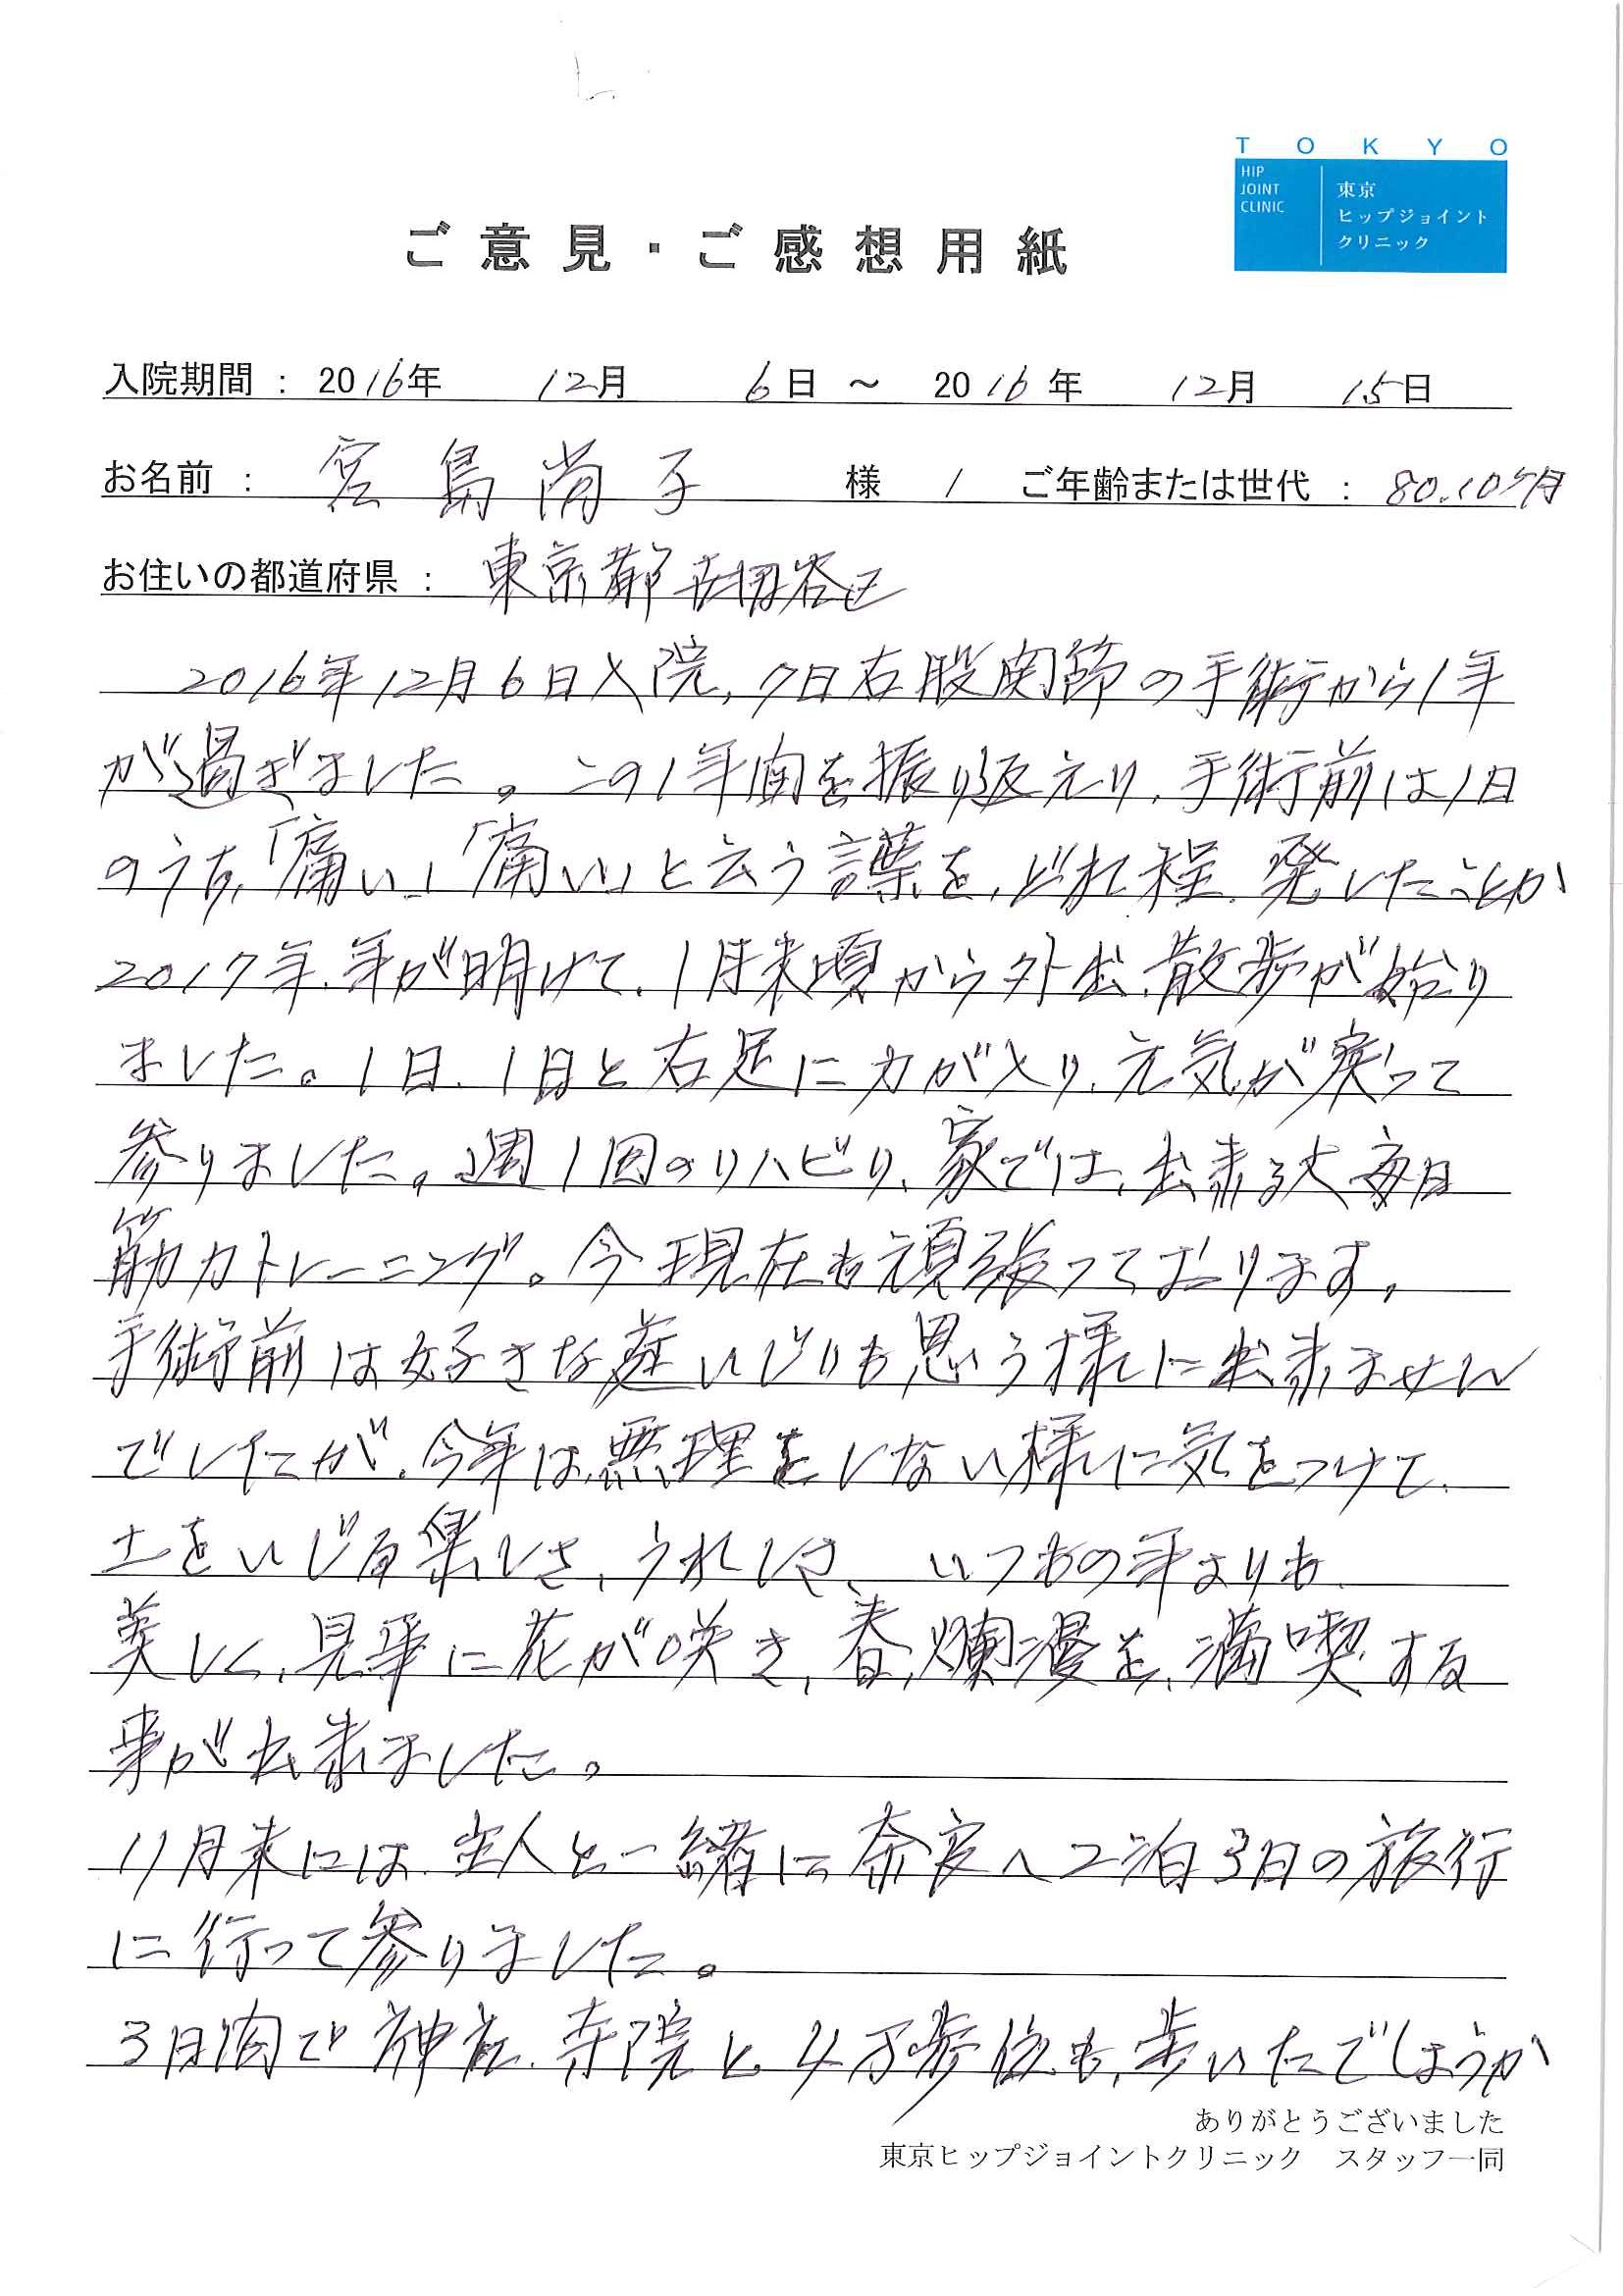 TOKYO
HIP
JOINT
CLINIC
東京
ヒップジョイント
クリニック
ご意見・ご感想用紙
入院期間 : 2016年 12月 6日 ～ 2016年 12月 15日
お名前 : 宮島尚子 様 / ご年齢または世代 : 80.10ヶ月
お住いの都道府県 : 東京都世田谷区
2016年12月6日入院,7日右股関節の手術から1年
が過ぎました。この1年間を振り返えり、手術前は1日
のうち、「痛い」「痛い」と云う言葉を、どれ程、発したことか
2017年、年が明けて、1月末頃から外出、散歩が始り
ました。1日、1日と右足に力が入り、元気が戻って
参りました。週1回のリハビリ、家では、出来る丈毎日
筋力トレーニング。今現在も頑張っております。
手術前は好きな庭いじりも思う様に出来ません
でしたが、今年は、無理をしない様に気をつけて、
土をいじる楽しさ、うれしさ、いつもの年よりも、
美しく、見事に花が咲き、春、爛漫を、満喫する
事が出来ました。
11月末には、主人と一緒に奈良へ2泊3日の旅行
に行って参りました。
3日間で神社、寺院と、4万歩位も、歩いたでしょうか
ありがとうございました
東京ヒップジョイントクリニック スタッフ一同